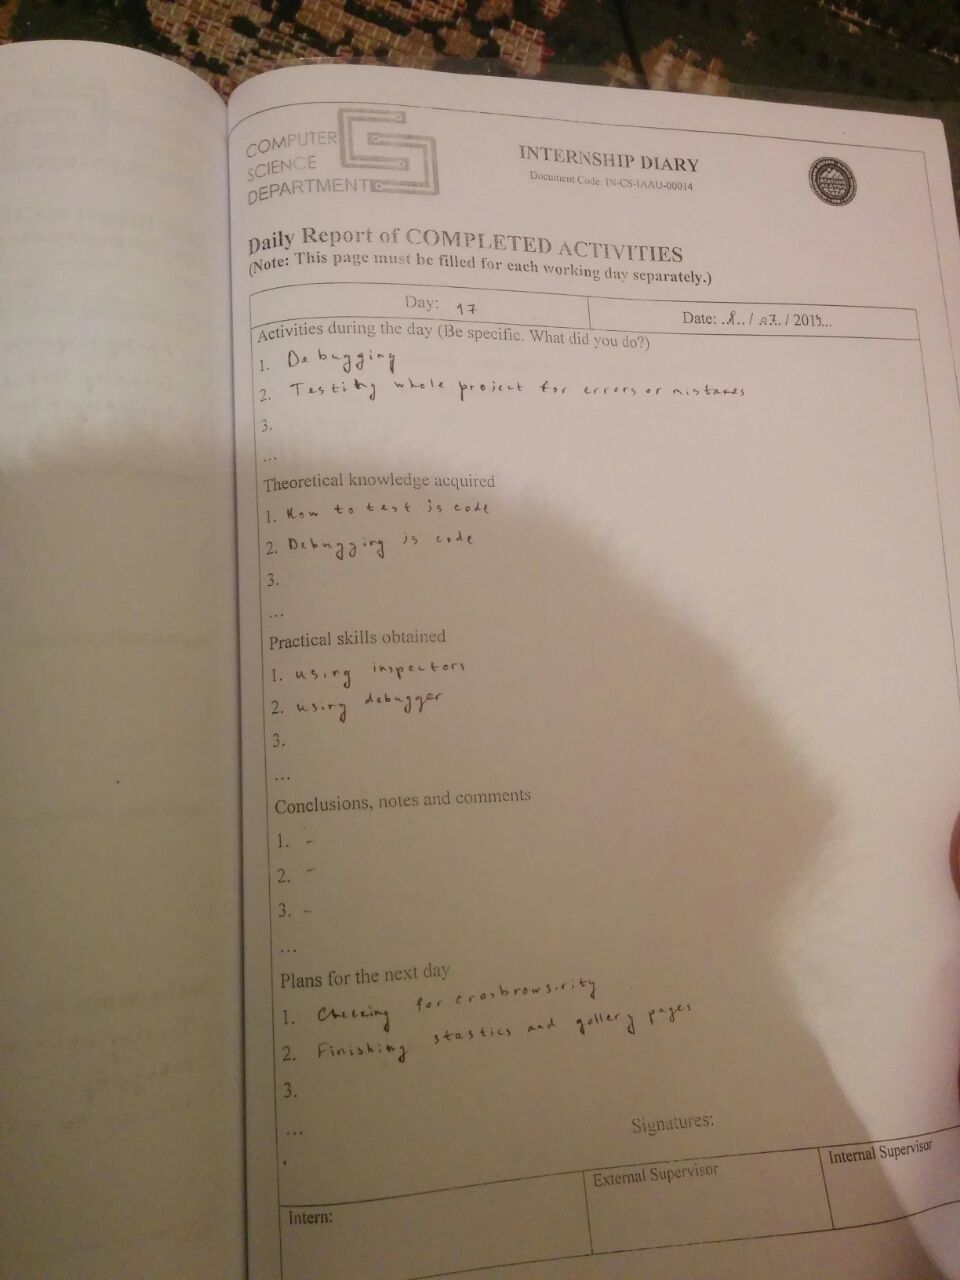 COMPUTER
SCIENCE
DEPARTMENT
INTERNSHIP DIARY
Document Code: IN-CS-IAAU-00014
Daily Report of COMPLETED ACTIVITIES
(Note: This page must be filled for each working day separately.)
Day: 17
Date: ..8../.07./2019...
Activities during the day (Be specific. What did you do?)
1. Debugging
2. Testing whole project for errors or mistakes
3.
...
Theoretical knowledge acquired
1. How to test js code
2. Debugging js code
3.
...
Practical skills obtained
1. using inspectors
2. using debugger
3.
...
Conclusions, notes and comments
1. -
2. -
3. -
...
Plans for the next day
1. Checking for crosbrowsirity
2. Finishing stastics and gallery pages
3.
...
Signatures:
Intern:
External Supervisor
Internal Supervisor